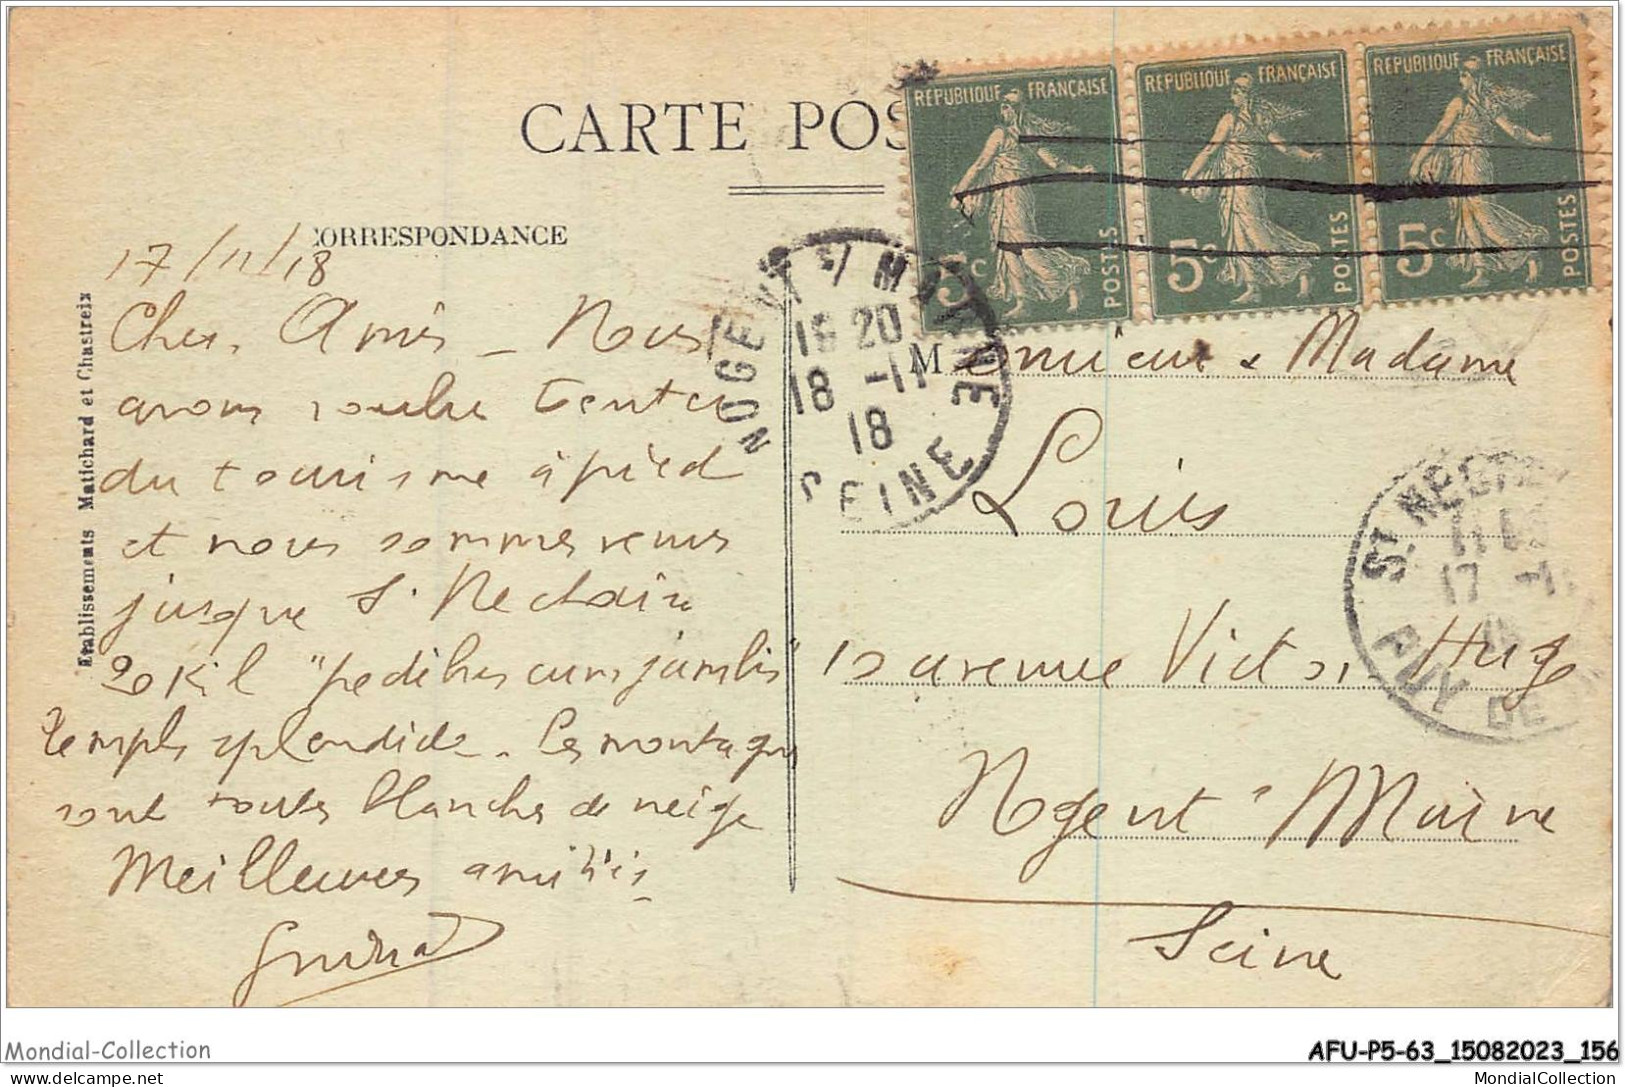 CARTE POS
CORRESPONDANCE
17/11/18
Chers Amis – Nous
avons voulu tenter
du tourisme à pied
et nous sommes venus
jusque St Nectaire
20 Kil "pedibus cum jambis"
Temps splendide. Les montagnes
sont toutes blanches de neige
Meilleures amitiés
Etablissements Matichard et Chastreix
REPUBLIQUE FRANÇAISE
5c
POSTES
REPUBLIQUE FRANÇAISE
5c
POSTES
REPUBLIQUE FRANÇAISE
5c
POSTES
NOGENT S/ MARNE
18 -11
18
SEINE
Monsieur & Madame
Louis
10 avenue Victor Hugo
Nogent s/ Marne
Seine
ST NECTAIRE
17
PUY DE
Mondial-Collection
AFU-P5-63_15082023_156
poste-ici.net
MondialCollection